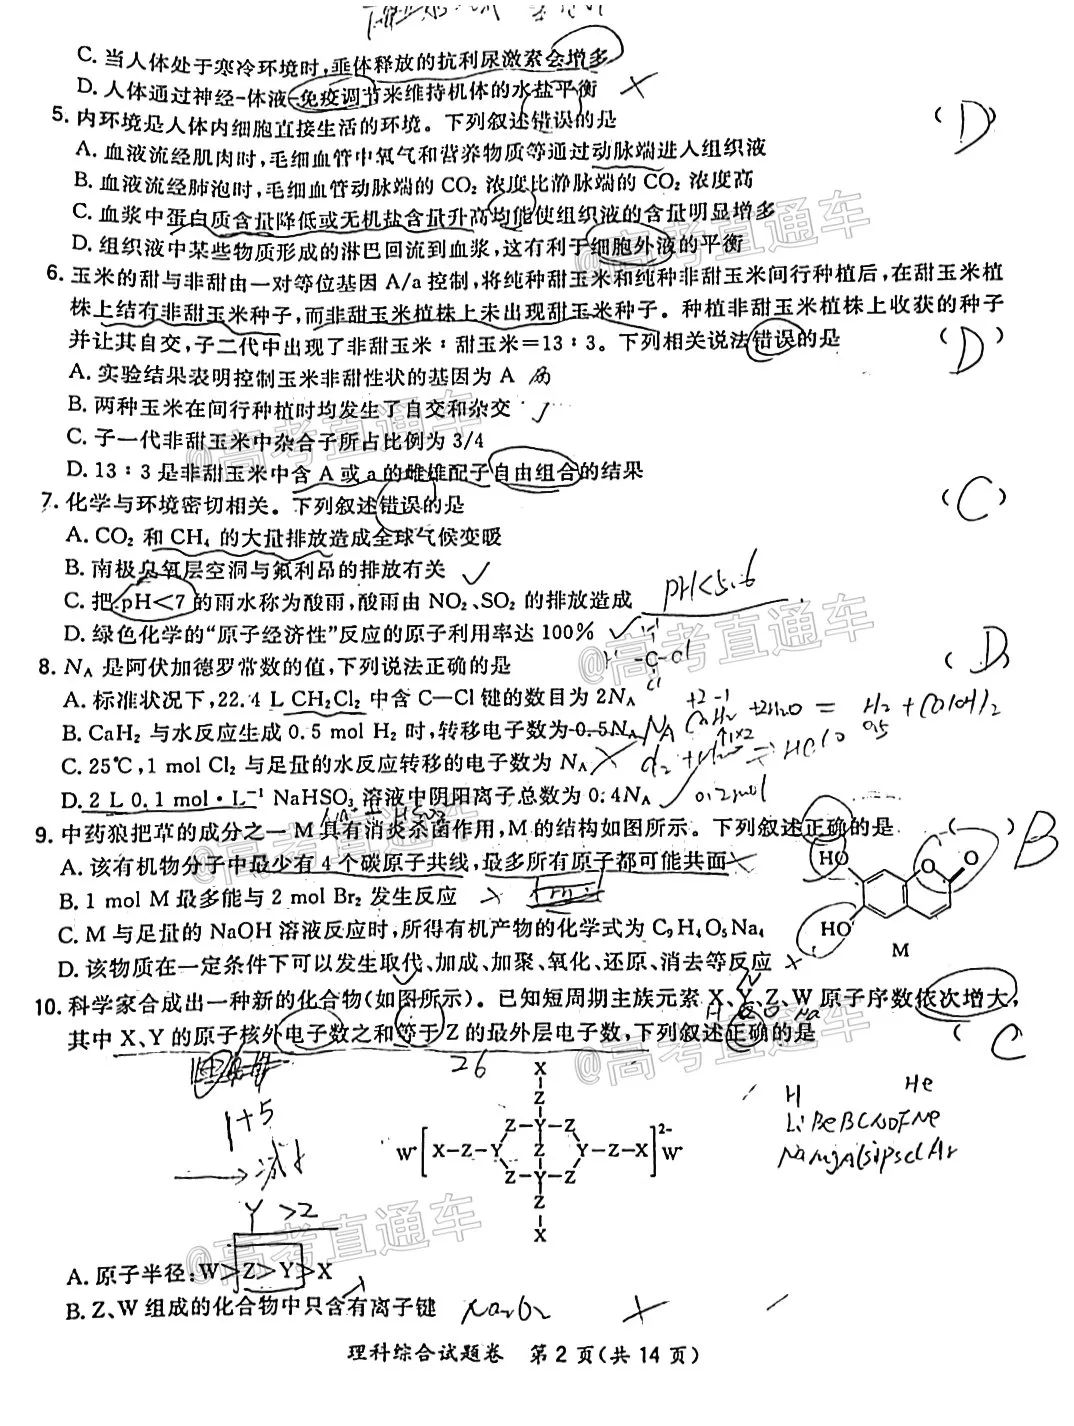 C. 当人体处于寒冷环境时,垂体释放的抗利尿激素会增多
D. 人体通过神经-体液-免疫调节来维持机体的水盐平衡
5. 内环境是人体内细胞直接生活的环境。下列叙述错误的是 (D)
A. 血液流经肌肉时,毛细血管中氧气和营养物质等通过动脉端进入组织液
B. 血液流经肺泡时,毛细血管动脉端的 CO₂ 浓度比静脉端的 CO₂ 浓度高
C. 血浆中蛋白质含量降低或无机盐含量升高均能使组织液的含量明显增多
D. 组织液中某些物质形成的淋巴回流到血浆,这有利于细胞外液的平衡
6. 玉米的甜与非甜由一对等位基因 A/a 控制,将纯种甜玉米和纯种非甜玉米间行种植后,在甜玉米植
株上结有非甜玉米种子,而非甜玉米植株上未出现甜玉米种子。种植非甜玉米植株上收获的种子
并让其自交,子二代中出现了非甜玉米:甜玉米=13:3。下列相关说法错误的是 (D)
A. 实验结果表明控制玉米非甜性状的基因为 A
B. 两种玉米在间行种植时均发生了自交和杂交
C. 子一代非甜玉米中杂合子所占比例为 3/4
D. 13:3 是非甜玉米中含 A 或 a 的雌雄配子自由组合的结果
7. 化学与环境密切相关。下列叙述错误的是 (C)
A. CO₂ 和 CH₄ 的大量排放造成全球气候变暖
B. 南极臭氧层空洞与氟利昂的排放有关
C. 把 pH<7 的雨水称为酸雨,酸雨由 NO₂、SO₂ 的排放造成 pH<5.6
D. 绿色化学的“原子经济性”反应的原子利用率达 100%
8. Nᴀ 是阿伏加德罗常数的值,下列说法正确的是 (D)
A. 标准状况下,22.4 L CH₂Cl₂ 中含 C—Cl 键的数目为 2Nᴀ
B. CaH₂ 与水反应生成 0.5 mol H₂ 时,转移电子数为 0.5Nᴀ NA CaH₂+2H₂O = H₂+Ca(OH)₂
C. 25℃,1 mol Cl₂ 与足量的水反应转移的电子数为 Nᴀ
D. 2 L 0.1 mol·L⁻¹ NaHSO₃ 溶液中阴阳离子总数为 0.4Nᴀ 0.2mol
9. 中药狼把草的成分之一 M 具有消炎杀菌作用,M 的结构如图所示。下列叙述正确的是 ( ) B
A. 该有机物分子中最少有 4 个碳原子共线,最多所有原子都可能共面
B. 1 mol M 最多能与 2 mol Br₂ 发生反应
C. M 与足量的 NaOH 溶液反应时,所得有机产物的化学式为 C₉H₄O₅Na₄
D. 该物质在一定条件下可以发生取代、加成、加聚、氧化、还原、消去等反应
HO
HO
O
O
M
10. 科学家合成出一种新的化合物(如图所示)。已知短周期主族元素 X、Y、Z、W 原子序数依次增大,
其中 X、Y 的原子核外电子数之和等于 Z 的最外层电子数,下列叙述正确的是 (C
26
1+5
Y >2
H He
Li Be B C N O F Ne
Na Mg Al Si P S Cl Ar
X
Z
Z—Y—Z
W⁺[X—Z—Y Z Y—Z—X]²⁻W⁺
Z—Y—Z
Z
X
A. 原子半径:W>Z>Y>X
B. Z、W 组成的化合物中只含有离子键 Na₂O₂
理科综合试题卷 第 2 页(共 14 页)
@高考直通车
@高考直通车
@高考直通车
@高考直通车
@高考直通车
@高考直通车
@高考直通车